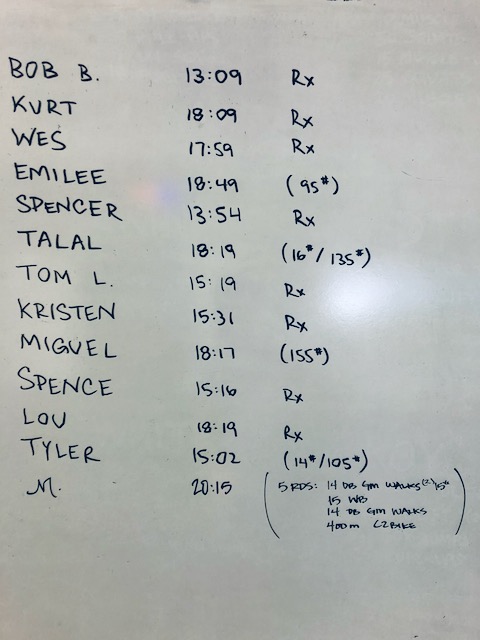 BOB B. 13:09 Rx
KURT 18:09 Rx
WES 17:59 Rx
EMILEE 18:49 (95#)
SPENCER 13:54 Rx
TALAL 18:19 (16#/135#)
TOM L. 15:19 Rx
KRISTEN 15:31 Rx
MIGUEL 18:17 (155#)
SPENCE 15:16 Rx
LOU 18:19 Rx
TYLER 15:02 (14#/105#)
M. 20:15 (5 RDS: 14 DB GM WALKS (2) 15#
15 WB
14 DB GM WALKS
400m C2BIKE)